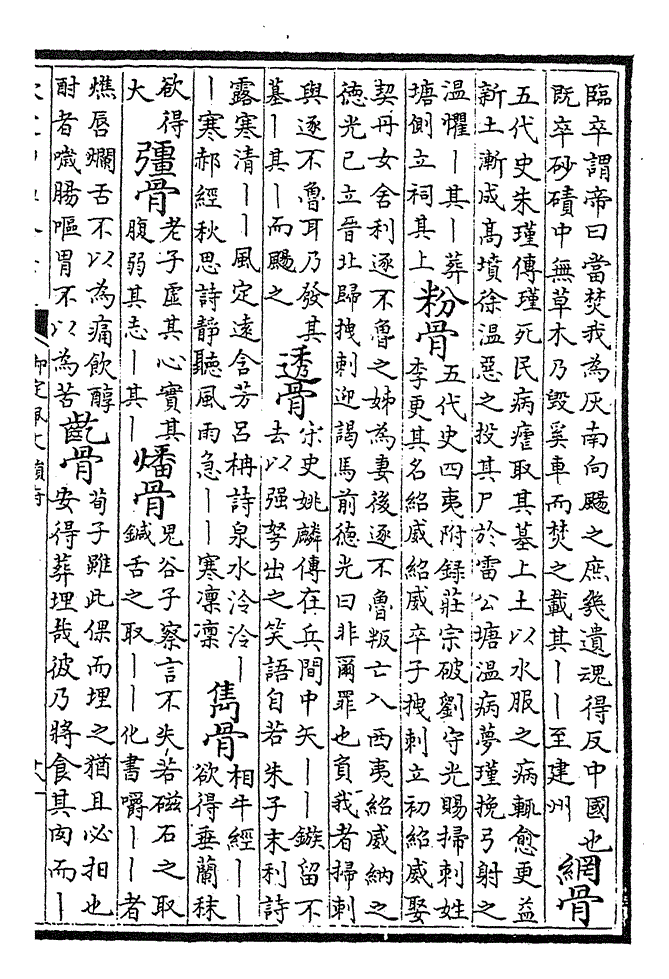 臨卒謂帝曰當焚我為灰南向颺之庶幾遺魂得反中國也
既卒砂磧中無草木乃毀奚車而焚之載其丨丨至建州
網骨
五代史朱瑾傳瑾死民病瘧取其墓上土以水服之病輒愈更益
新土漸成高墳徐温惡之投其尸於雷公塘温病夢瑾挽弓射之
温懼丨其丨葬
塘側立祠其上
粉骨
五代史四夷附錄莊宗破劉守光賜掃刺姓
李更其名紹威紹威卒子拽刺立初紹威娶
契丹女舍利逐不魯之姊為妻後逐不魯叛亡入西夷紹威納之
德光已立晉北歸拽刺迎謁馬前德光曰非爾罪也負我者掃刺
與逐不魯耳乃發其
墓丨其丨而颺之
透骨
宋史姚麟傳在兵間中矢丨丨鏃留不
去以强弩出之笑語自若朱子末利詩
露寒清丨丨風定遠含芳呂柟詩泉水泠泠丨
丨寒郝經秋思詩靜聽風雨急丨丨寒凛凛
雋骨
相牛經丨丨
欲得垂蘭秣
欲得
大
彊骨
老子虛其心實其
腹弱其志丨其丨
燔骨
鬼谷子察言不失若磁石之取
鍼舌之取丨丨化書嚼丨丨者
燋唇爛舌不以為痛飲醇
酎者噦腸嘔胃不以為苦
齕骨
荀子雖此倮而埋之猶且必抇也
安得葬埋哉彼乃將食其肉而丨
御定佩文韻府